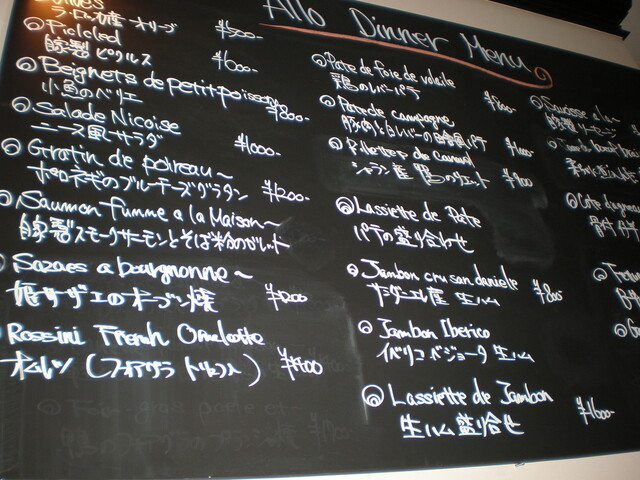 Allo Dinner Menu
Olives
プロヴァンス産 オリーブ ¥500-
◎ Pickled
自家製 ピクルス ¥600-
◎ Beignets de petit poisson
小魚のベニエ ¥800-
◎ Salade Nicoise
ニース風サラダ ¥1000-
◎ Gratin de poireau~
ポロネギのブルーチーズグラタン ¥1200-
◎ Saumon fumme a la Maison~
自家製スモークサーモンとそば粉のガレット
◎ Sazaes a bourgnonne~
姫サザエのオーブン焼 ¥1200
Rossini French Omelette
オムレツ (フォアグラ トリュフ入)
◎ Pate de foie de volaile
鶏のレバーパテ ¥800-
◎ Pate de campagne
豚肉と白レバーの田舎風パテ
◎ Rillettes de canard
シャラン産 鴨のリエット
◎ Lassiette de Pate
パテの盛り合わせ
◎ Jambon cru san daniele
サンダニエレ産 生ハム ¥800-
◎ Jambon Iberico
イベリコ ベジョータ 生ハム
◎ Lassiette de Jambon
生ハム 盛り合せ ¥1600-
◎ Saucisse a la
自家製 ソーセージ